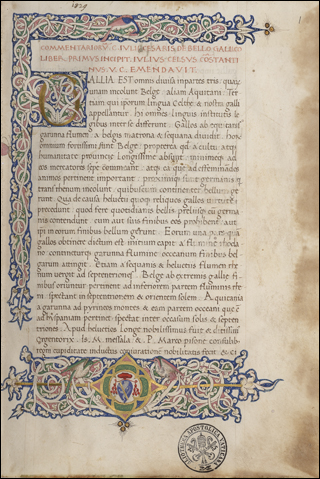 1
COMMENTARIORV. C. IVLI CESARIS. DE BELLO GALLICO
LIBER PRIMVS INCIPIT. IVLIVS CELSVS CONSTANTI
NVS. V. C. EMENDAVIT.
GALLIA EST omnis divisa in partes tris: quar
unam incolunt Belgę. aliam Aquitani. Ter
tiam qui ipsorum lingua Celthę & nostra galli
appellantur. Hi omnes lingua institutis le
gibus inter se differunt. Gallos ab equitanis
garunna flumen a belgis matrona & sequana dividit. hor
omnium fortissimi sunt Belgę. propterea qd a cultu atq;
humanitate provincię longissime absunt. minimeq; ad
eos mercatores sępe commeant. atq; ea quę ad effeminados
animos pertinent important. proximiq; sunt germanis q
trans rhenum incolunt. quibuscum continenter bellum ge
runt. Qua de causa helvetii quoq; reliquos gallos virtute
precedunt. quod fere quotidianis pręliis cu germa
nis contendunt. cum aut suis finibus eos prohibent. aut
ipi in eorum finibus bellum gerunt. Eorum una pars quā
gallos obtinere dictum est initium capit a flumine rhoda
no. continetur garunna flumine occeanum finibus bel
garum attingit. Etiam a sequanis & helvetiis flumen rhe
num vergit ad septentriones. Belgę ab extremis gallię fi
nibus oriuntur. pertinent ad inferiorem partem fluminis rhe
ni. spectant in septentrionem & orientem solem. Aquitania
a garunna ad pyreneos montes & eam partem occeani quę ē
ad hispaniam pertinet. spectat inter occasum solis & septen
triones. Apud helvetios longe nobilissimus fuit & ditissimus
orgentorix. Is. M. messala & P. Marco pisone consulibus
regni cupiditate inductus coniurationem nobilitatis fecit. & ci
BIBLIOTHECA APOSTOLICA VATICANA